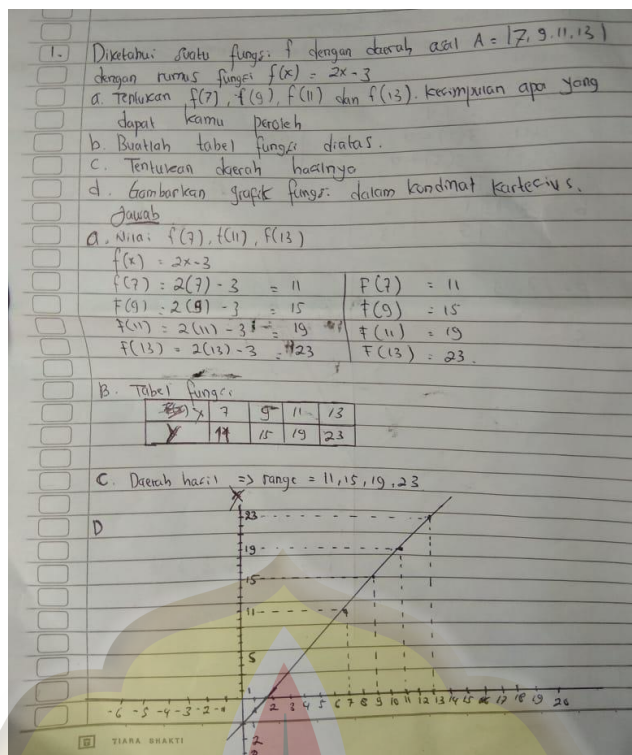 1. Diketahui suatu fungsi f dengan daerah asal A = {7, 9, 11, 13}
dengan rumus fungsi f(x) = 2x - 3
a. Tentukan f(7), f(9), f(11) dan f(13). Kesimpulan apa yang
dapat kamu peroleh
b. Buatlah tabel fungsi diatas.
c. Tentukan daerah hasilnya
d. Gambarkan grafik fungsi dalam kordinat kartecius.
Jawab
a. Nilai f(7), f(11), f(13)
f(x) = 2x-3
f(7) = 2(7) - 3 = 11 F(7) = 11
F(9) = 2(9) - 3 = 15 f(9) = 15
f(11) = 2(11) - 3 = 19 f(11) = 19
f(13) = 2(13) - 3 = 23 F(13) = 23.
B. Tabel fungsi
x 7 9 11 13
Y 11 15 19 23
C. Daerah hasil => range = 11, 15, 19, 23
D
23
19
15
11
5
1
-6 -5 -4 -3 -2 2 3 4 5 6 7 8 9 10 11 12 13 14 15 16 17 18 19 20
2
TIARA SHAKTI